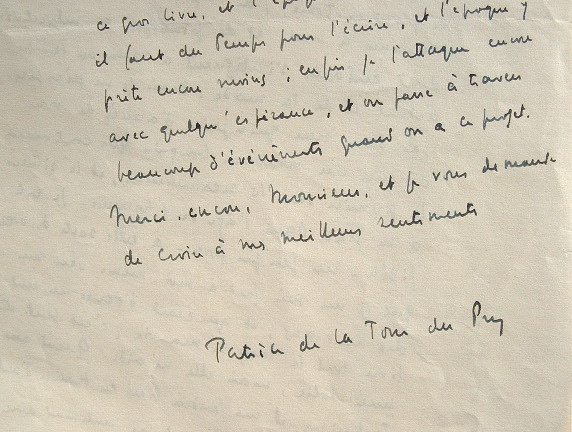 ce gros livre, et l'
il faut du temps pour l'écrire, et l'époque y
prête encore moins ; enfin je l'attaque encore
avec quelqu'espérance, et on passe à travers
beaucoup d'événements quand on a ce projet.
Merci, encore, Monsieur, et je vous demande
de croire à mes meilleurs sentiments
Patrice de la Tour du Pin